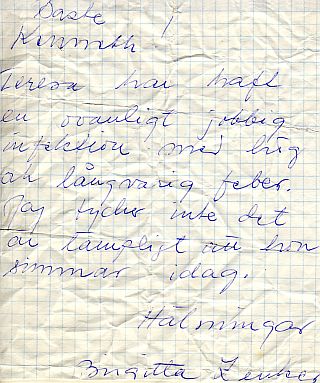 Bäste
Kenneth!
Teresa har haft
en ovanligt jobbig
infektion med hög
och långvarig feber.
Jag tycker inte det
är lämpligt att hon
simmar idag.
Hälsningar
Birgitta Zenker